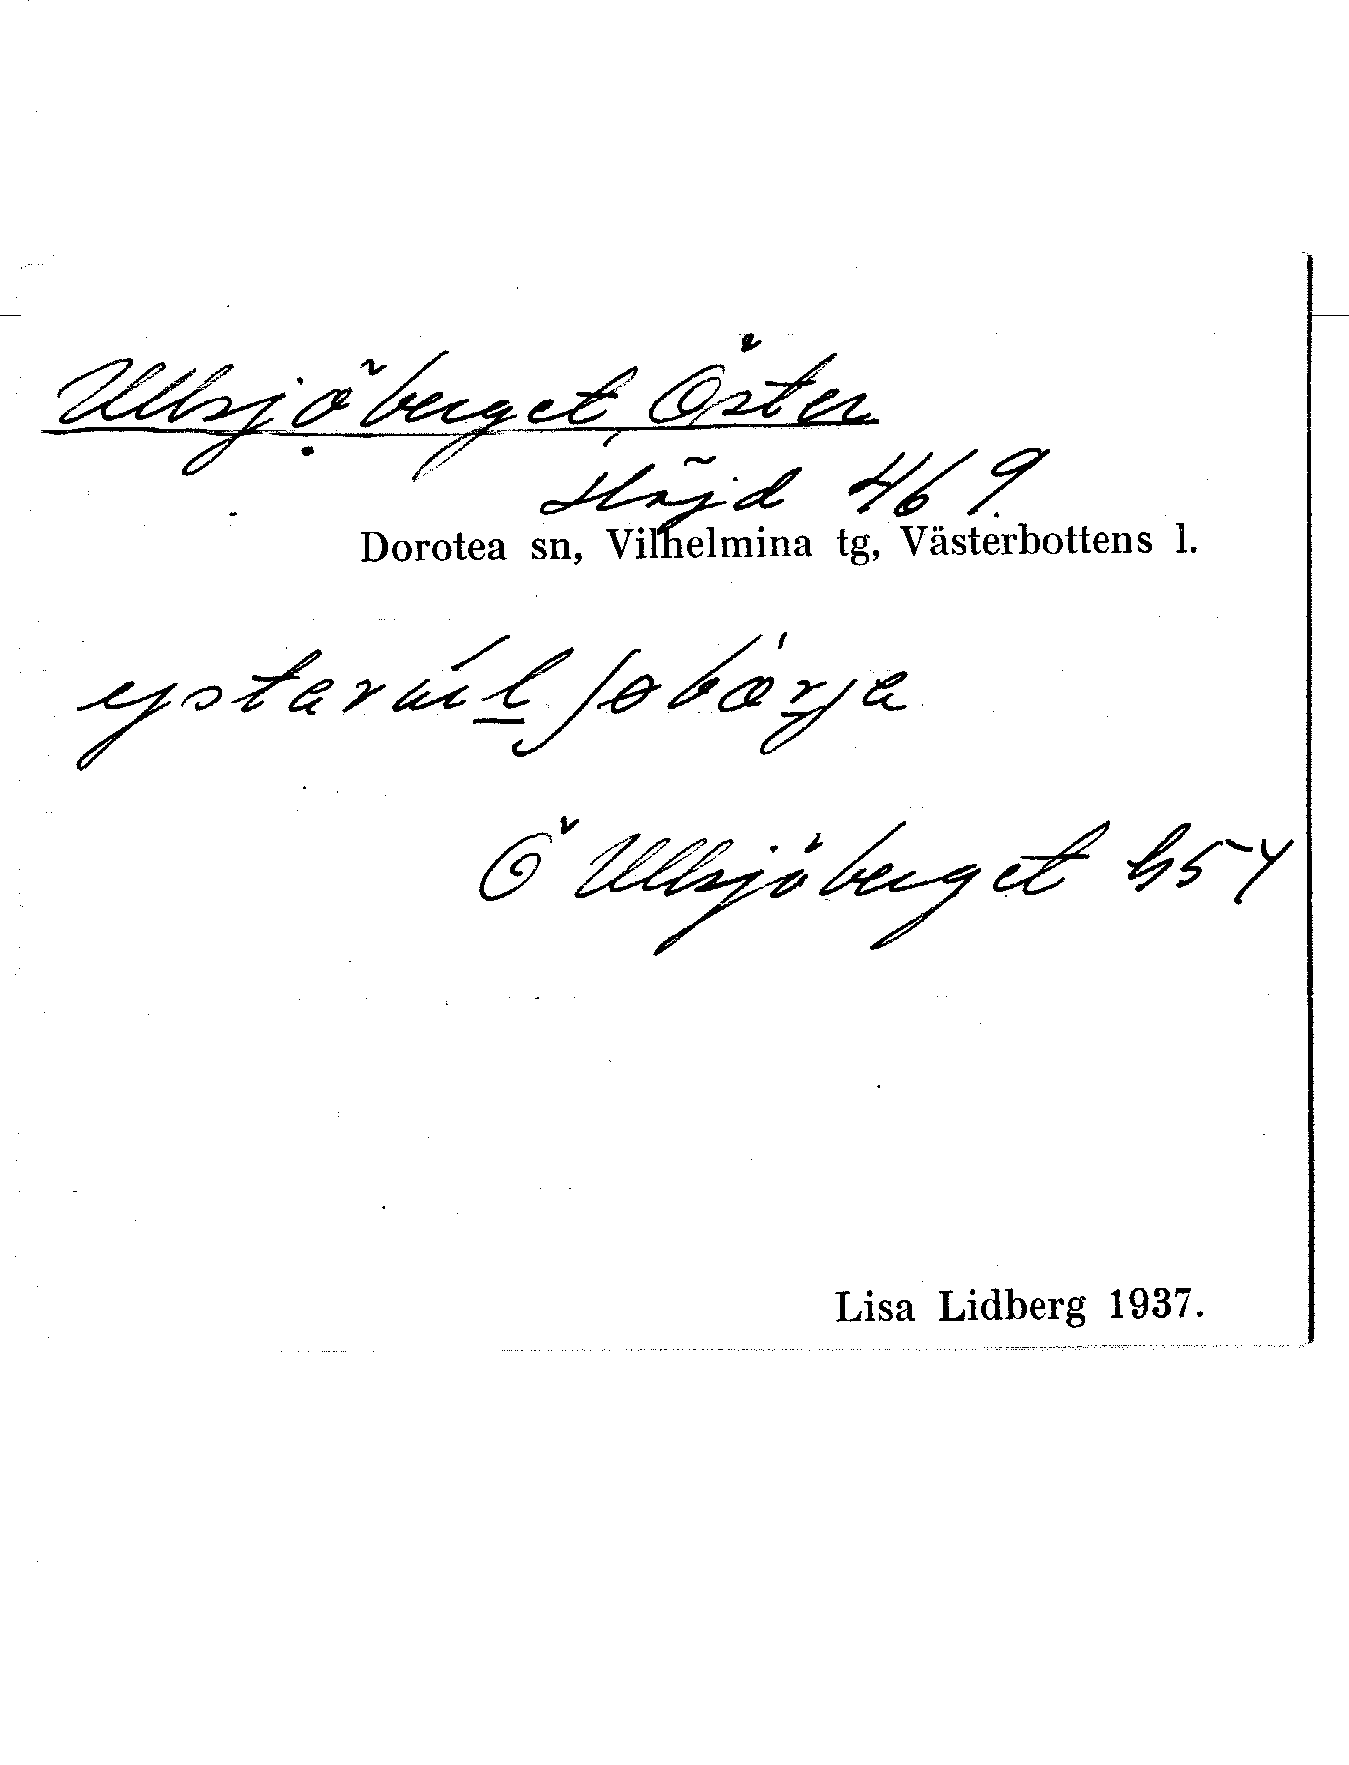 Ullsjöberget, Öster
Höjd 469
Dorotea sn, Vilhelmina tg, Västerbottens l.
Ö Ullsjöberget h54
Lisa Lidberg 1937.